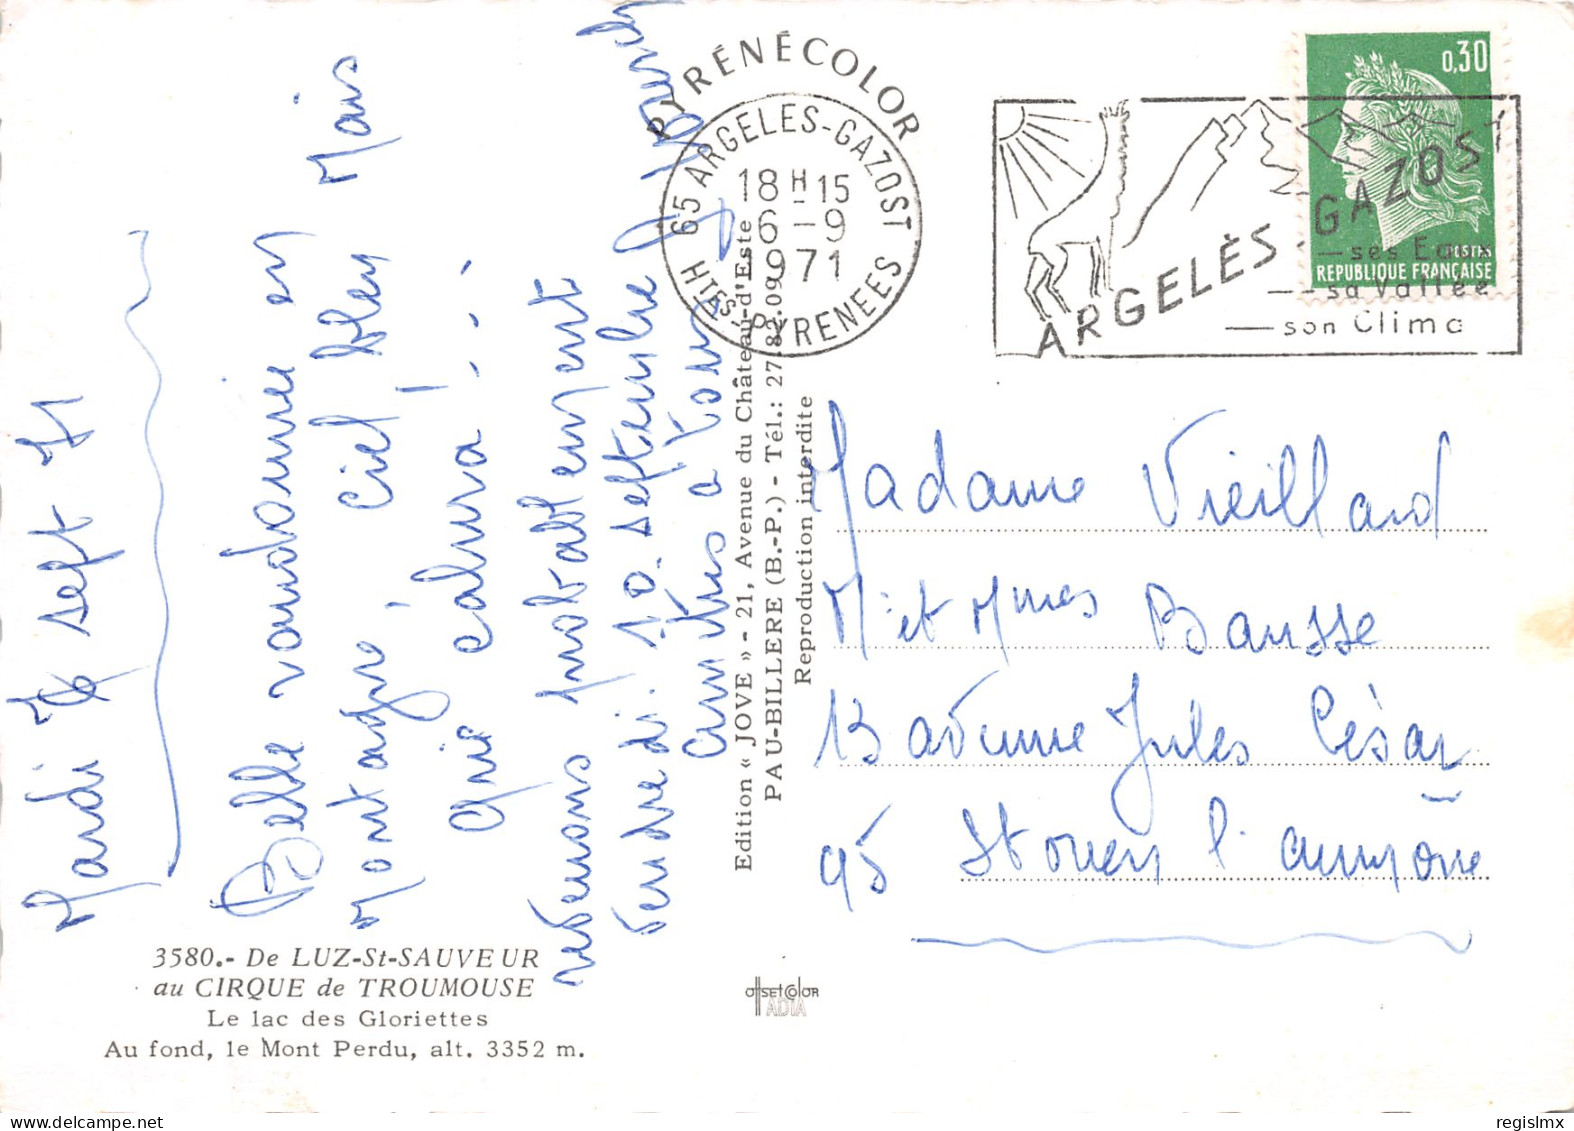 Mardi 7 sept 71
Belle randonnée en
montagne, ciel bleu Mais
que calme!...
revenons probablement
vendredi. 10. septembre
amitiés à tous
3580.- De LUZ-St-SAUVEUR
au CIRQUE de TROUMOUSE
Le lac des Gloriettes
Au fond, le Mont Perdu, alt. 3352 m.
PYRÉNÉCOLOR
Edition « JOVE » - 21, Avenue du Château-d'Este
PAU-BILLERE (B.-P.) - Tél.: 27.82.09
Reproduction interdite
65 ARGELES-GAZOST
18 H 15
6-9
1971
HTES-PYRENEES
ARGELÈS-GAZOST
ses Eaux
sa Vallée
son Climat
0,30
POSTES
REPUBLIQUE FRANÇAISE
Madame Vieillard
M. et Mmes Bausse
13 avenue Jules César
95 St Ouen l'aumône
OffSEtCOlOR
IADIA
regislmx